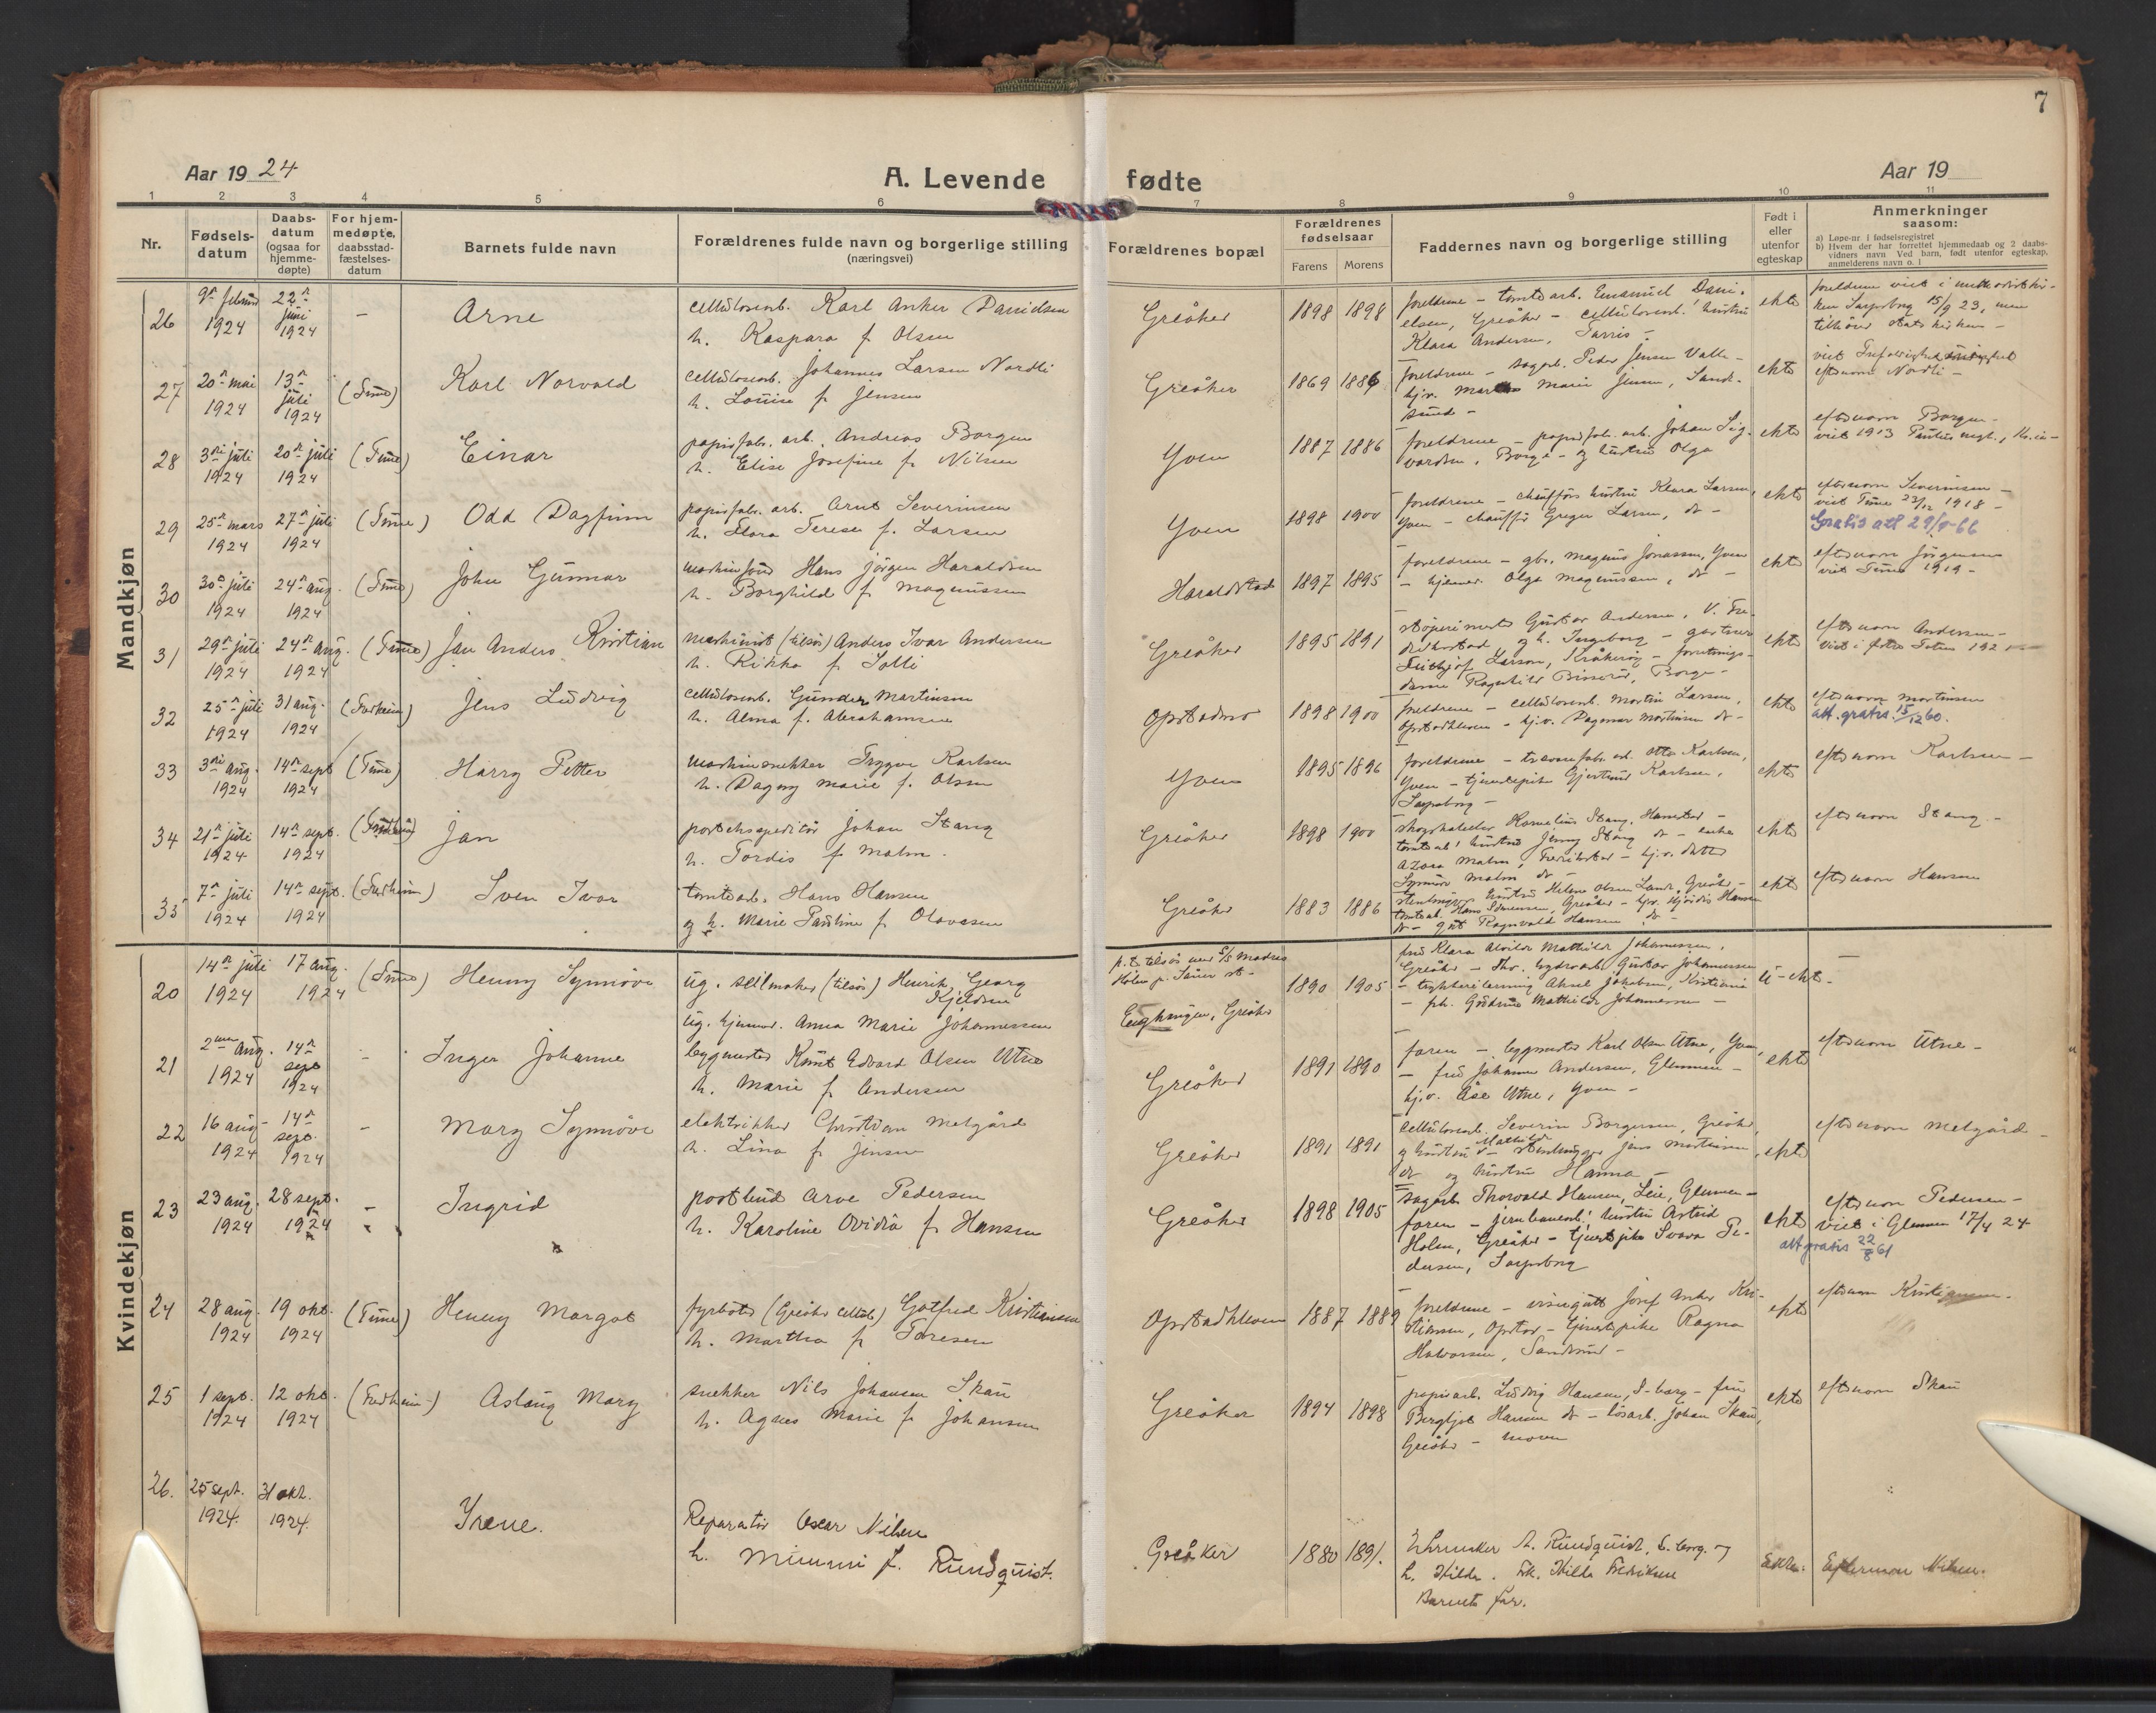 7
Aar 1924
A. Levende fødte
Aar 19
1 2 3 4 5 6 7 8 9 10 11
Nr.
Fødsels-
datum
Daabs-
datum
(ogsaa for
hjemme-
døpte)
For hjem-
medøpte,
daabsstad-
fæstelses-
datum
Barnets fulde navn
Forældrenes fulde navn og borgerlige stilling
(næringsvei)
Forældrenes bopæl
Forældrenes
fødselsaar
Farens Morens
Faddernes navn og borgerlige stilling
Født i
eller
utenfor
egteskap
Anmerkninger
saasom:
a) Løpe-nr. i fødselsregistret
b) Hvem der har forrettet hjemmedaab og 2 daabs-
vidners navn Ved barn, født utenfor egteskap,
anmelderens navn o. l
Mandkjøn
26
9n februar
1924
22n
juni
1924
–
Arne
cellulosearb. Karl Anker Danielsen
h. Kaspara f. Olsen
Greåker
1898 1898
foreldrene – tomtearb. Emanuel Dani-
elsen, Greåker – cellulosearb. hustru
Klara Andersen,
ekte
foreldrene viet i metodistkir-
ken Sarpsborg 15/9 23, men
tilhører statskirken –
27
20n mai
1924
13n
juli
1924
(Tune)
Karl Norvald
cellulosearb. Johannes Larsen Nordli
h. Louise f. Jensen
Greåker
1869 1886
foreldrene – sagarb. Peder Jensen Valle –
hjv. Marie Jensen, Sand-
sund –
ekte
viet
eftenavn Nordli –
28
3die juli
1924
20n juli
1924
(Tune)
Einar
papirfabr. arb. Andreas Borgen
h. Elise Josefine f. Nilsen
Yven
1887 1886
foreldrene – papirfab. arb. Johan Sig-
vardsen, Borge – og hustru Olga
ekte
eftenavn Borgen –
viet 1913
29
25n mars
1924
27n juli
1924
(Tune)
Odd Dagfinn
papirfabr. arb. Arnt Severinsen
h. Flora Terese f. Larsen
Yven
1898 1900
foreldrene – chaufførs hustru Klara Larsen,
Yven – chauffør Greger Larsen, do –
ekte
eftenavn Severinsen –
viet Tune 23/12 1918 –
Gratis att 29/8-66
30
30n juli
1924
24n aug.
1924
(Tune)
John Gunnar
Hans Jörgen Haraldsen
h. Borghild f. Magnussen
Haraldstad
1897 1895
foreldrene – gbr. Magnus Jonassen, Yven
– hjemmev. Olga Magnussen, do –
ekte
eftenavn Jörgensen
viet Tune 1919 –
31
29n juli
1924
24n aug.
1924
(Tune)
Jan Anders Kristian
maskinist (tilsjøs) Anders Ivar Andersen
h. Rikka f. Solli
Greåker
1895 1891
støperimester Gustav Andersen, V. Fre-
drikstad og h. Ingeborg – gartner
Fritjof Larsen, Kråkerøy – forretnings-
dame Ragnhild Borge –
ekte
eftenavn Andersen –
viet i østre Toten 192
32
25n juli
1924
31 aug.
1924
(Furheim)
Jens Ludvig
cellulosearb. Gunder Martinsen
h. Alma f. Abrahamsen
Opstadmo
1898 1900
foreldrene – cellulosearb. Martin Larsen,
Opstadkleven – hj.v. Dagmar Martinsen do –
ekte
eftenavn Martinsen
att. gratis 15/12 60.
33
3die aug.
1924
14n sept
1924
(Tune)
Harry Petter
maskinsnekker Trygve Karlsen
h. Dagny Marie f. Olsen
Yven
1895 1896
foreldrene – travarefabr. arb. Otto Karlsen,
Yven – tjenestepike Gjertrud Karlsen,
Sarpsborg –
ekte
eftenavn Karlsen –
34
21n juli
1924
14n sept.
1924
Jan
postekspeditør Johan Stang
h. Tordis f. Malm.
Greåker
1898 1900
skogskasserer Kornelius Stang, –
tomtearb. hustru Jenny Stang do – enke
Azora Malm, Fredrikstad – hj.v. datter
Synnöve Malm do –
ekte
eftenavn Stang –
35
7n juli
1924
14n sept.
1924
(Furheim)
Sven Ivar
tomtearb. Hans Hansen
og h. Marie Pauline f. Olavesen
Greåker
1883 1886
hustru Helene Olsen Greåker –
tomtearb. Hans Sörensen, Greåker – hjv. Hjördis Hansen
do – gut Ragnvald Hansen do –
ekte
eftenavn Hansen
Kvindekjøn
20
14n juli
1924
17 aug.
1924
(Tune)
Henny Synnöve
ug. seilmaker (tilsjøs) Henrik Georg
Kjeldsen
ug. hjemmev. Anna Marie Johannessen
p.t. tilsjøs med S/S Madres
Greåker
1890 1905
fru Klara Alvilde Mathilde Johannessen,
Greåker – Gustav Johannessen
– Aksel Jakobsen, Kristiania
– pk. Gudrun Mathilde Johannessen –
u-ekte –
–
21
2nen aug.
1924
14n
sept
1924
–
Inger Johanne
bygmester Knut Edvard Olsen Utne
h. Marie f. Andersen
Greåker
1891 1890
faren – bygmester Karl Olsen Utne, Yven,
– fru Johanne Andersen, Glemmen –
hj.v. Åse Utne, Yven –
ekte
eftenavn Utne –
22
16 aug.
1924
14n
sept.
1924
–
Mary Synnöve
elektrikker Christian Melgård
h. Lina f. Jensen
Greåker
1891 1891
cellulosearb. Severin Borgersen, Greåker,
og hustru Mathilde do – stenhugger Jens Martinsen,
do og hustru Hanna –
ekte
eftenavn Melgård –
23
23 aug.
1924
28 sept.
1924
–
Ingrid
postbud Arve Pedersen
h. Karoline Ovidia f. Hansen
Greåker
1898 1905
sagarb. Thorvald Hansen, Leie, Glemmen –
faren – jernbanearb. hustru Astrid
Holm, Greåker – tjenestepike Svava Pe-
dersen, Sarpsborg
ekte
eftenavn Pedersen –
viet i Glemmen 17/4 24
att gratis 22/8 61
24
28 aug.
1924
19 okt.
1924
(Tune)
Henny Margot
fyrböter (Greåker cellul.) Gotfred Kristiansen
h. Martha f. Toresen
Opstadkleven
1887 1889
foreldrene – visergutt Josef Anker Kri-
stiansen, Opstad – tjenestepike Ragna
Halvorsen, Sandsund –
ekte
eftenavn Kristiansen.
25
1 sept.
1924
12 okt.
1924
(Fredheim)
Aslaug Mary
snekker Nils Johansen Skau
h. Agnes Marie f. Johansen
Greåker
1894 1898
papirarb. Ludvig Hansen, S-borg – fru
Bergljot Hansen do – løsarb. Johan Skau,
Greåker – moren
ekte
eftenavn Skau
26.
25 sept.
1924.
31 okt.
1924.
Irene.
Reparatör Oscar Nilsen
h. Mimmi f. Rundquist.
Greåker
1880 1891.
A. Rundquist, S.borg. og
h. Hilda. Frk. Hilda Fredriksen
Barnets far.
Ekte.
Efternavn Nilsen.